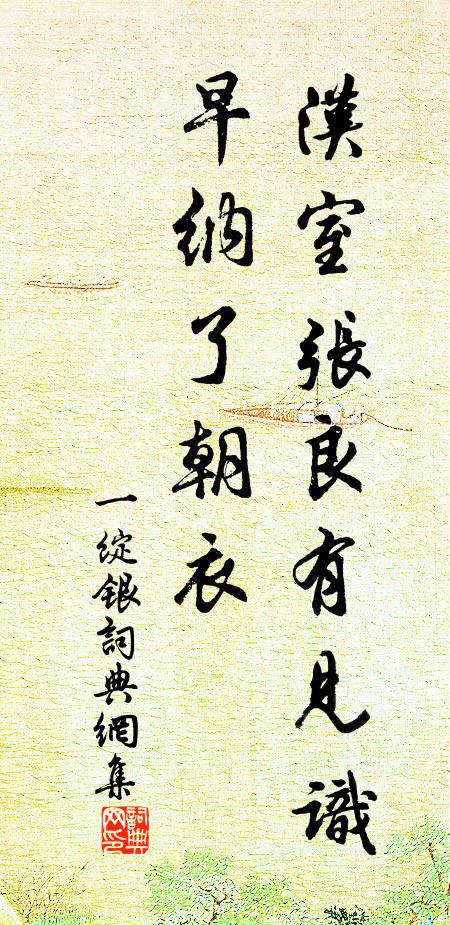 漢室張良有見識
早納了朝衣
一綻銀詞典網集
詞典網印